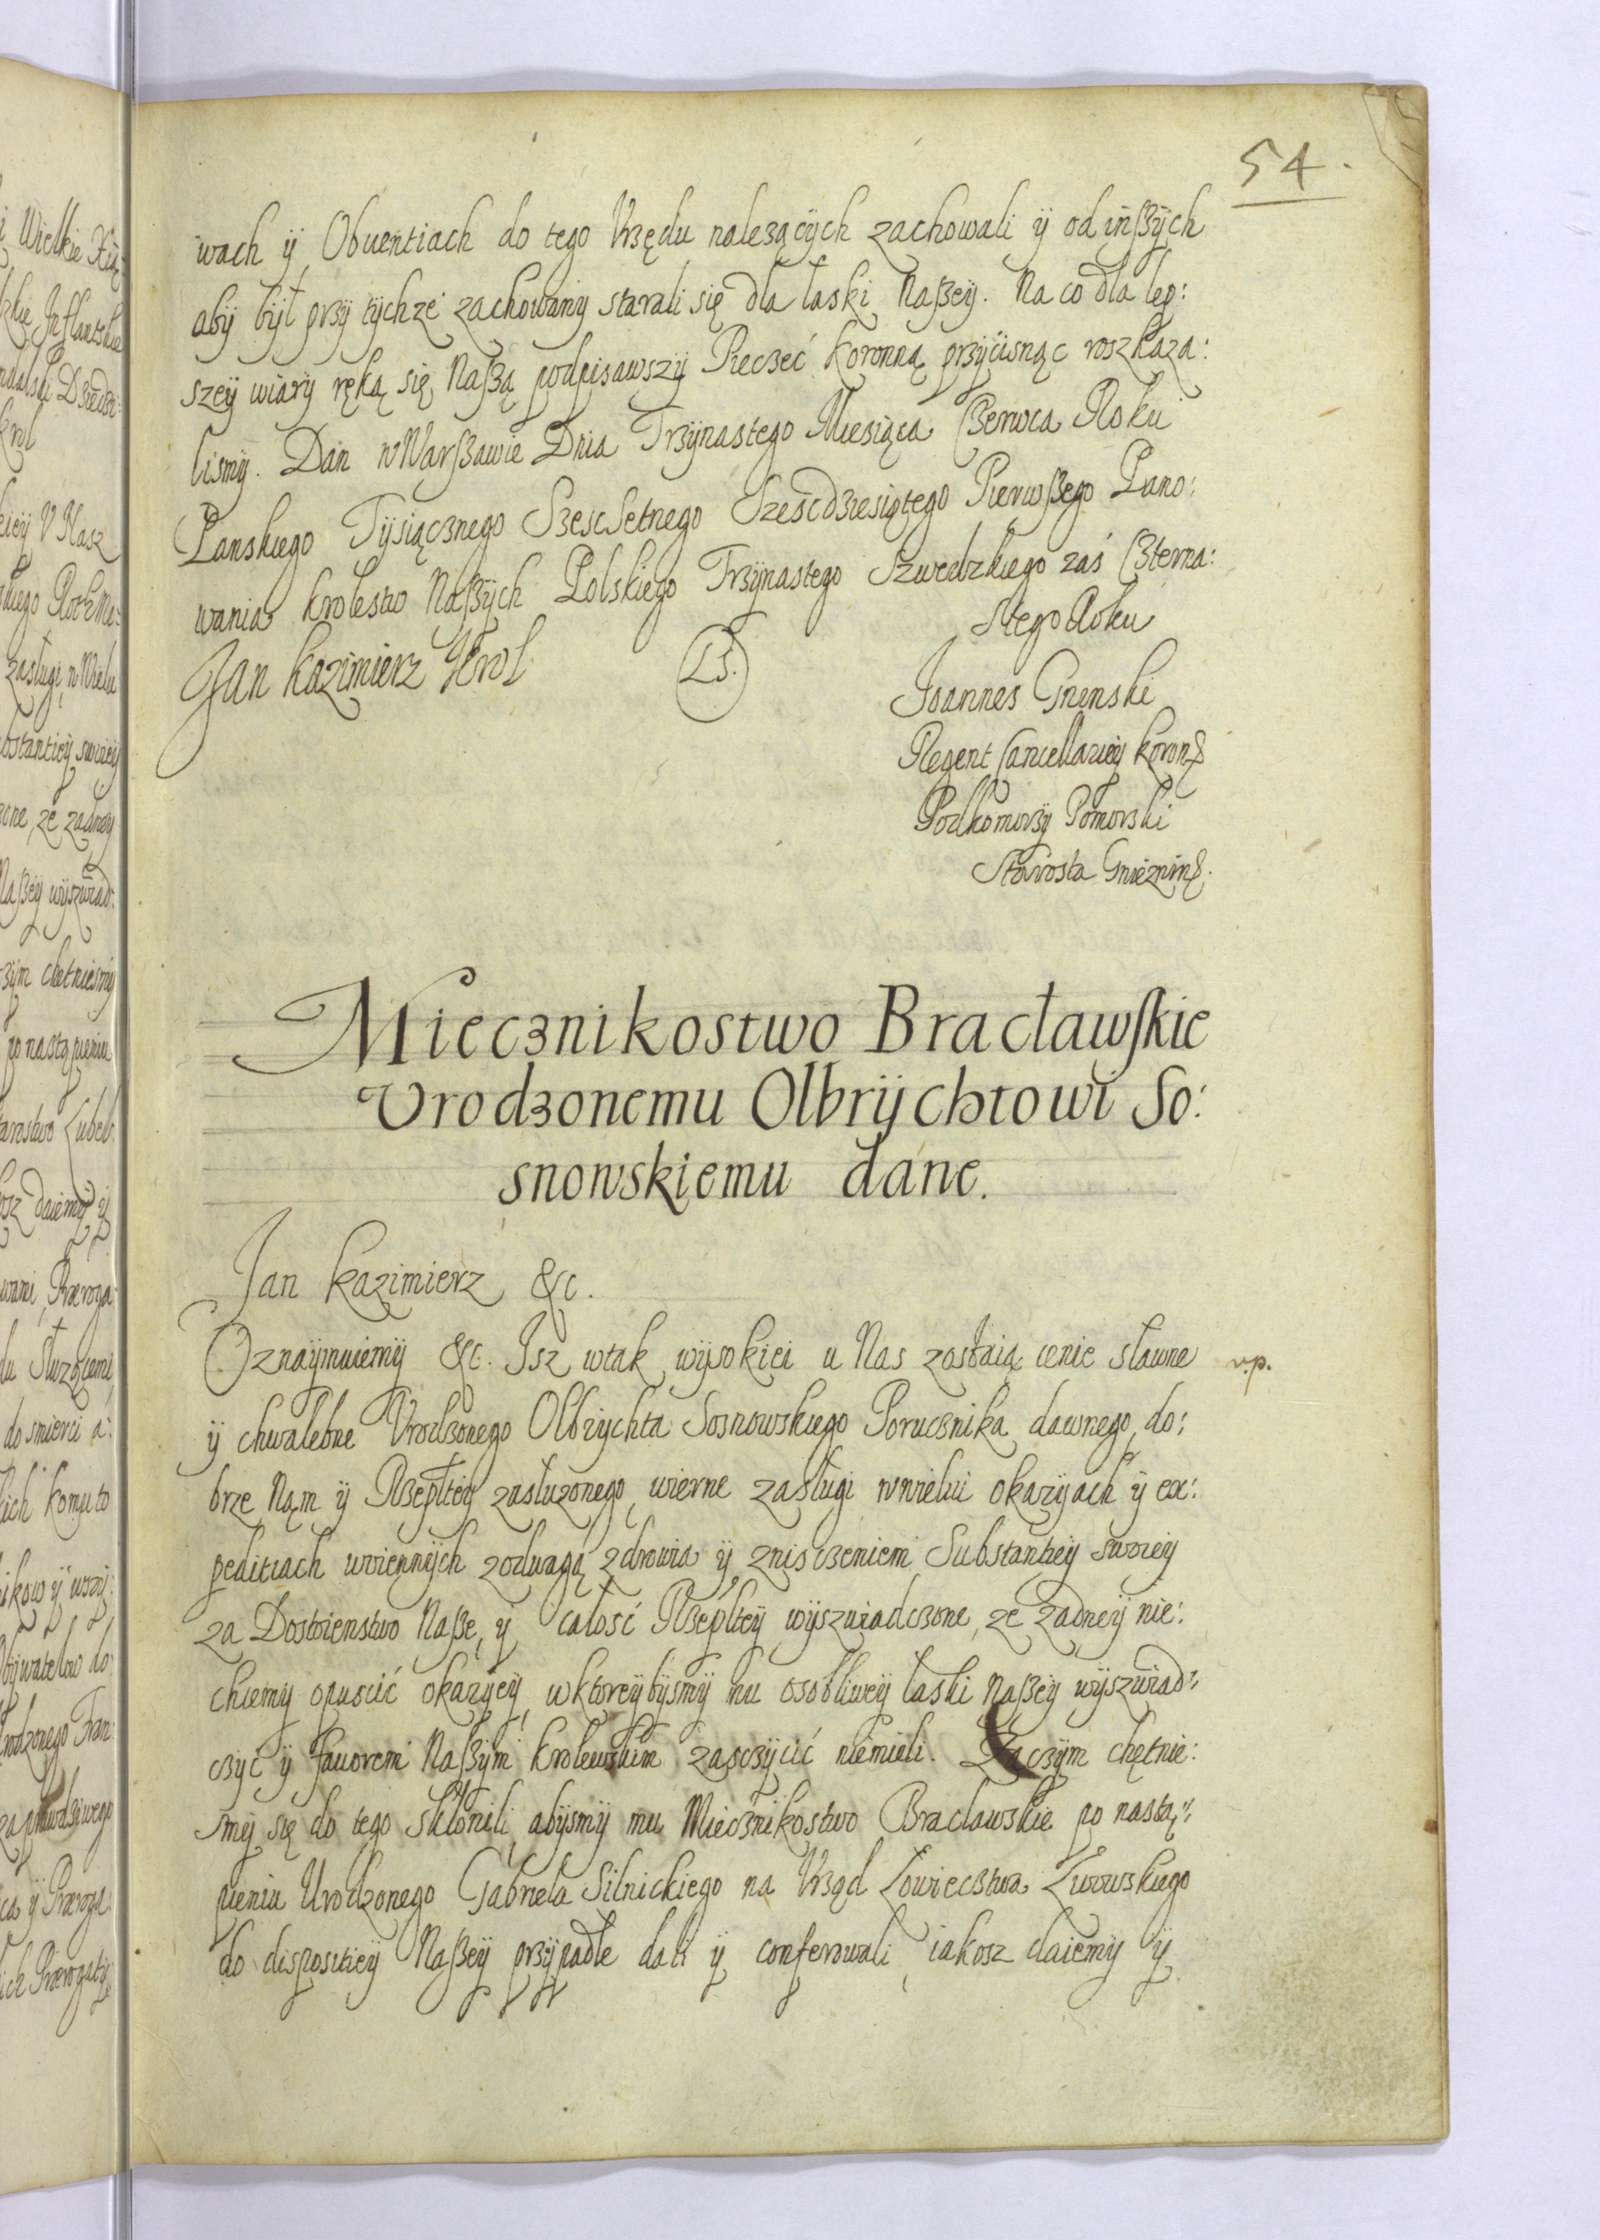 54.
wach ÿ Obuentiach do tego Vrzędu nalezącÿch zachowali ÿ od inßÿch
abÿ bÿł przÿ tÿchze zachowanÿ starali się dla łaski Naßeÿ. Na co dla lep:
szeÿ wiarÿ ręką się Naßą podpisawszÿ Pieczęć koronną przÿcisnąc roszkaza:
lismÿ. Dan w Warßawie Dnia Trzÿnastego Miesiąca Czerwca Roku
Panskiego Tÿsiącznego SzescSetnego Sześcdziesiątego Pierwßego Pano:
wania krolestw Naßÿch Polskiego Trzÿnastego Szwedzkiego zaś Czterna:
stego Roku
Jan Kazimierz Krol
LS.
Joannes Gninski
Regent Cancellarieÿ koron
Podkomorzÿ Pomorski
Starosta Gnieznin
Miecznikostwo Bracławskie
Vrodzonemu Olbrÿchtowi So:
snowskiemu dane.
Jan Kazimierz &c.
Oznaÿmuiemÿ &c. Isz wtak wÿsokiei u Nas zostaią cenie sławne
v.p.
ÿ chwalebne Vrodzonego Olbrÿchta Sosnowskiego Porucznika dawnego, do:
brze Nąm ÿ Rzeplteÿ zasłuzonego, wierne zasługi w wielu okazÿach ÿ ex:
peditiach woiennÿch z odwagą zdrowia ÿ zniszczeniem Substantieÿ swoieÿ
za Dostoienstwo Naße, ÿ całość Rzeplteÿ wÿszwiadczone, ze zadneÿ nie:
chcemÿ opuscić okazÿeÿ, w ktoreÿbÿsmÿ mu osobliweÿ łaski Naßeÿ wÿszwiad:
czÿć ÿ fauorem Naßÿm krolewskim zasczÿcić niemieli. Zaczÿm chętnie:
smÿ się do tego skłonili, abÿsmÿ mu Miecznikostwo Bracławskie po nastą:
pieniu Urodzonego Gabriela Silnickiego na Vrząd Łowiectwa Lwowskiego
do dispositieÿ Naßeÿ przÿpadłe dali ÿ conferowali, iakosz daiemÿ ÿ